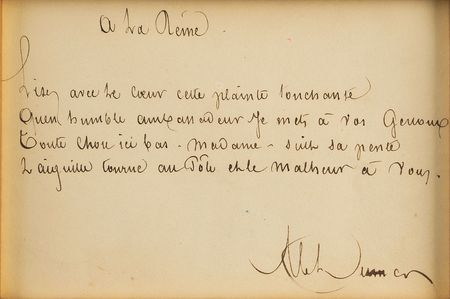 A La Reine.
Lisez avec le cœur cette plainte touchante
Qu'en humble ambassadeur Je mets à vos Genoux
Toute chose ici bas - Madame - suit sa pente
L'aiguille tourne au Pôle et le Malheur à Vous.
Alex Dumas